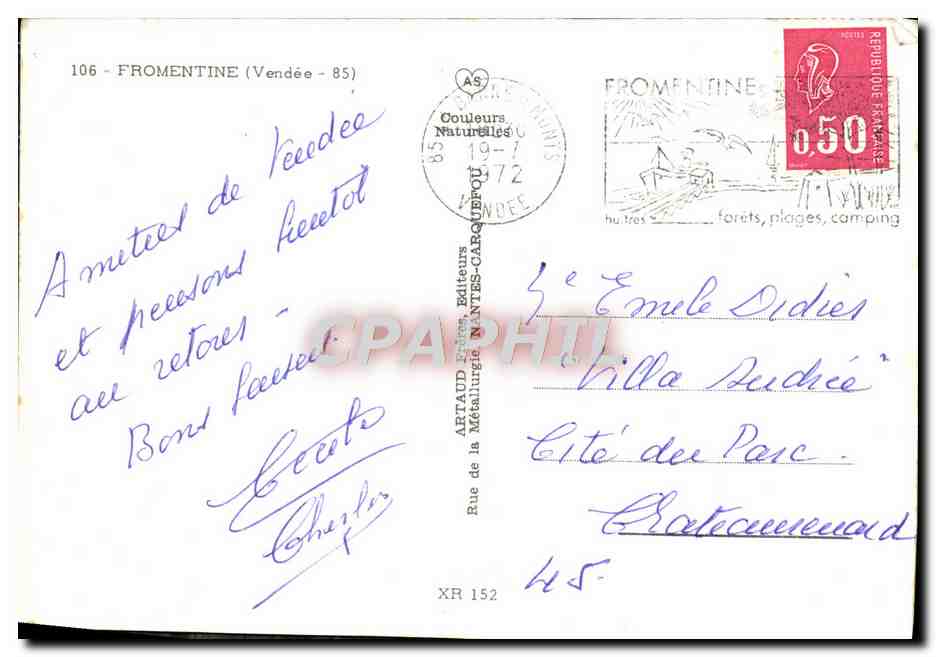 106 - FROMENTINE (Vendée - 85)
AS
Couleurs
Naturelles
85
19-7
1972
VENDEE
FROMENTINE
huîtres
forêts, plages, camping
POSTES
REPUBLIQUE FRANÇAISE
0,50
Amitiés de Vendée
et pensons bientot
au retour -
Bons baisers.
Charles
ARTAUD Frères, Editeurs
Rue de la Métallurgie, NANTES-CARQUEFOU
CPAPHIL
Emele Didier
"Villa Andrée"
Cité du Parc.
Chateaurenard
45.
XR 152